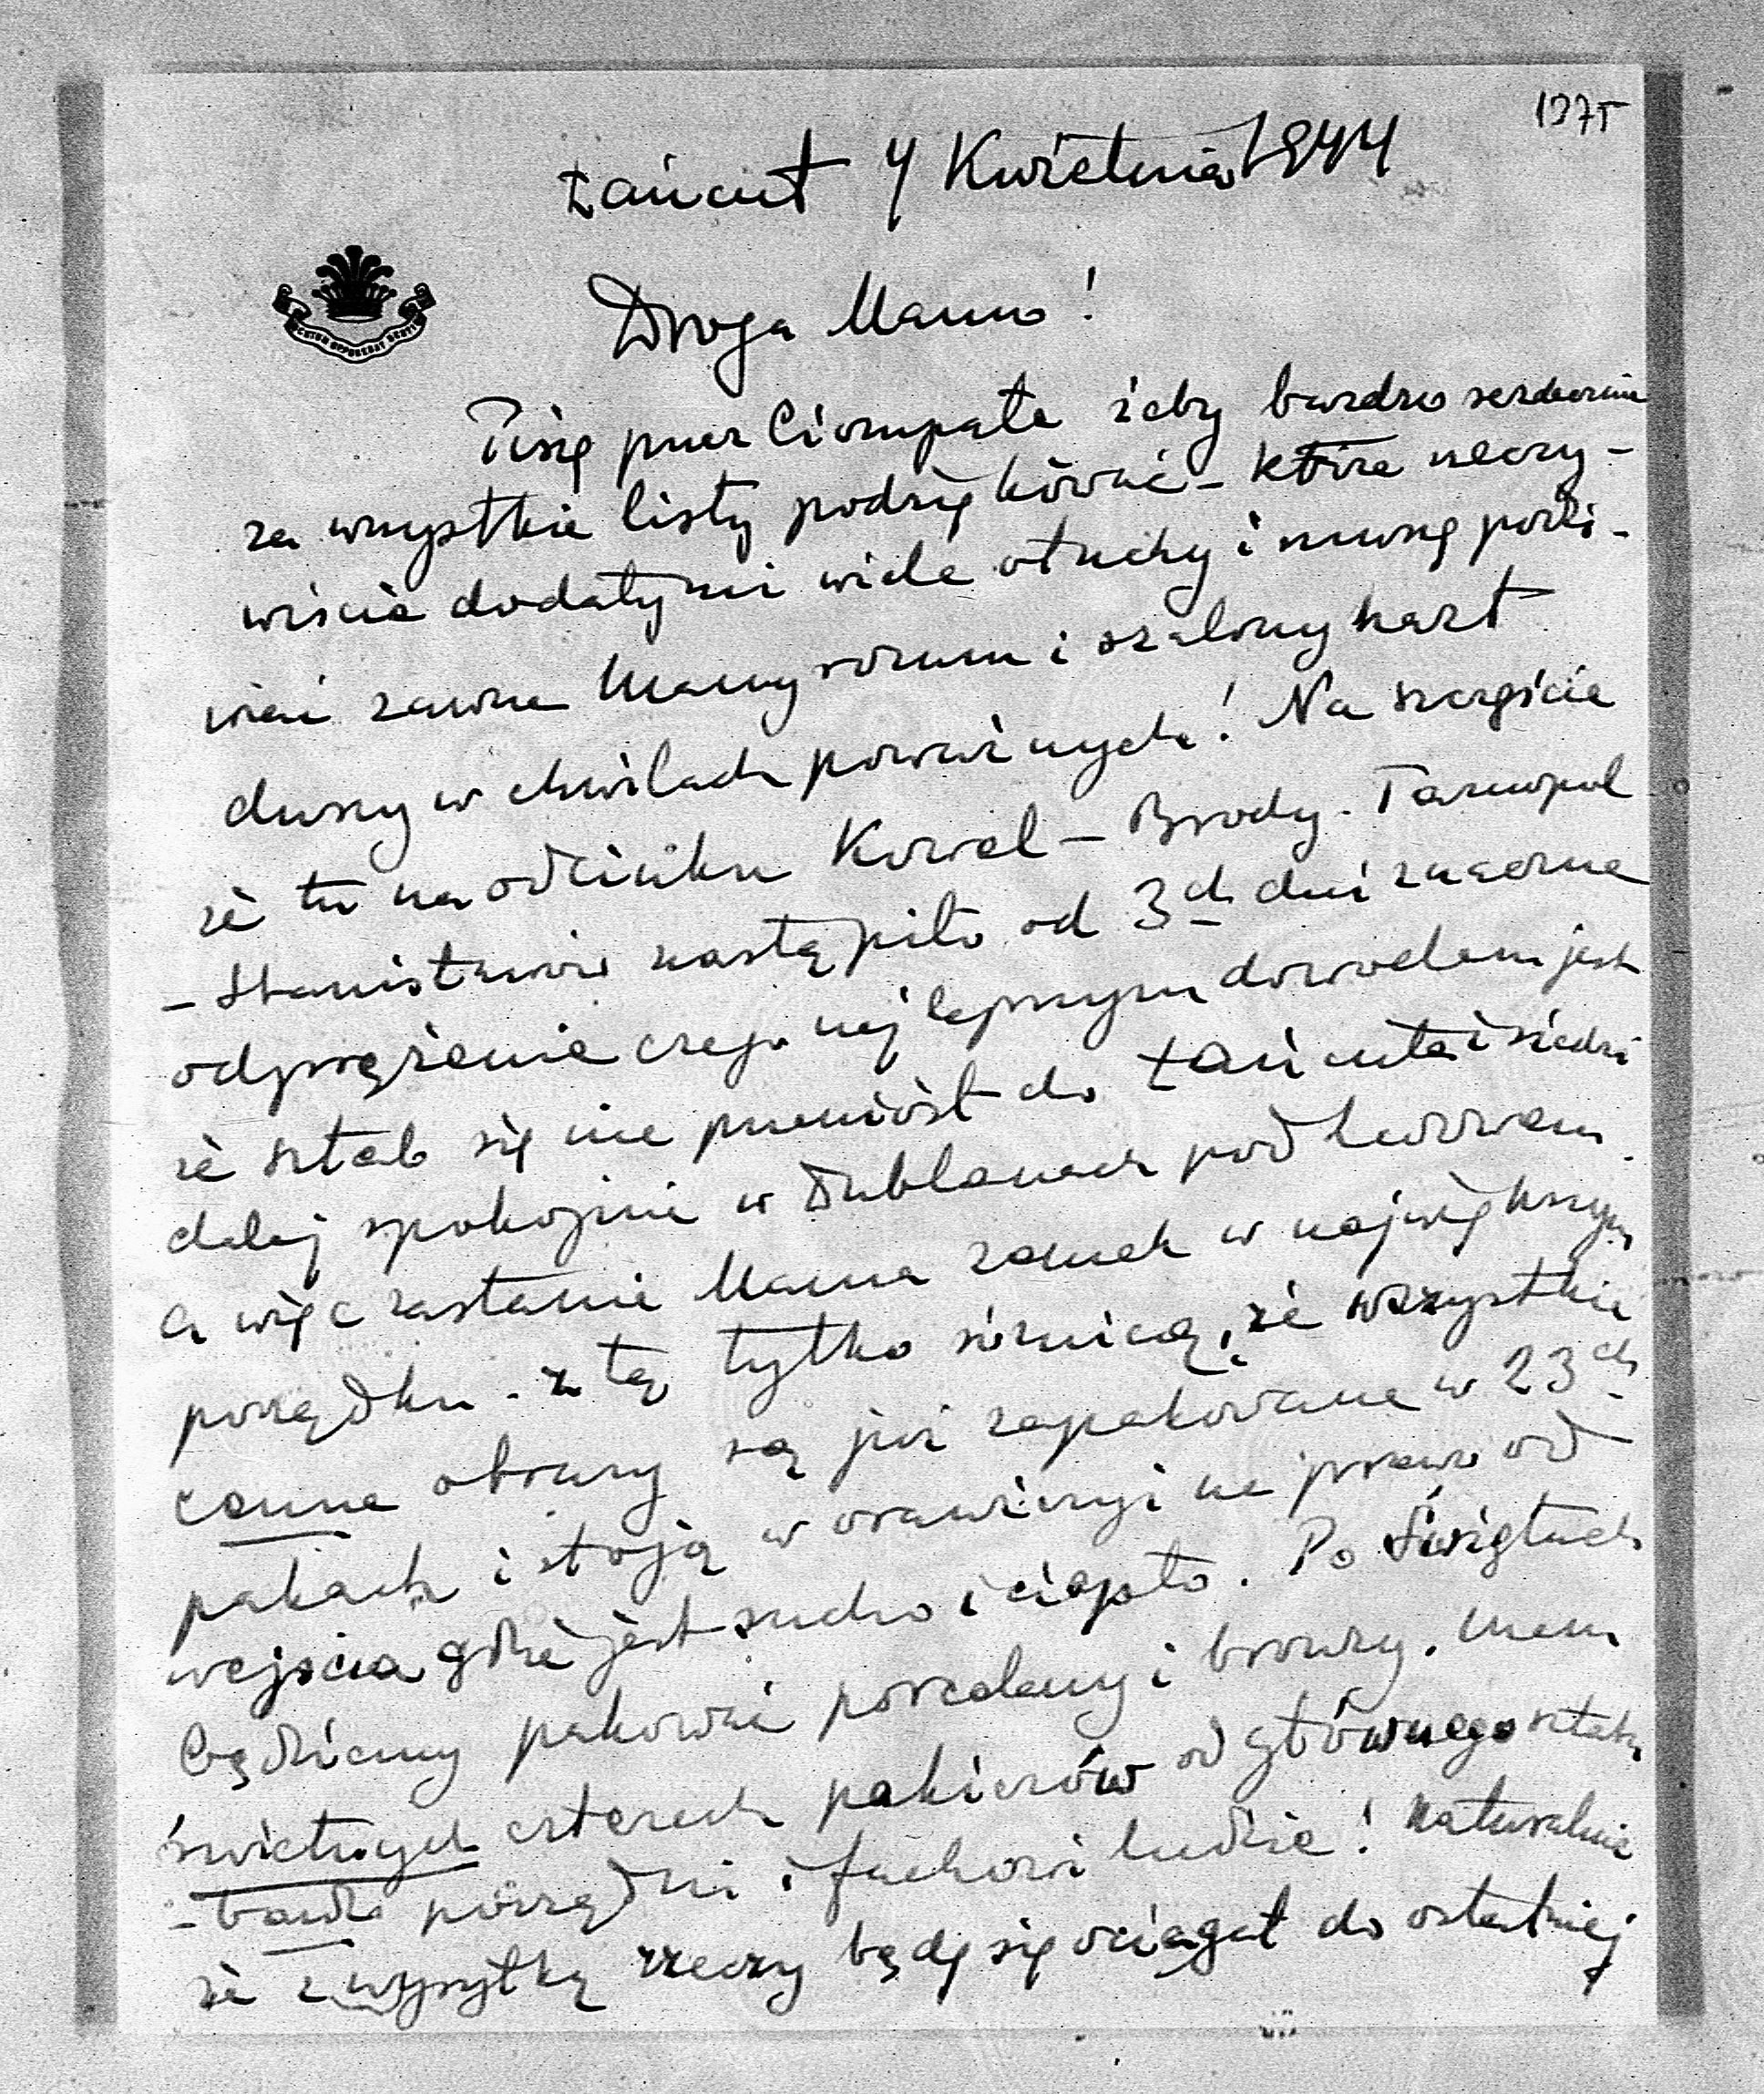 1375
Łańcut 4 Kwietnia 1944
Droga Mamo!
Piszę przez Ciompała żeby bardzo serdecznie
za wszystkie listy podziękować – które rzeczy-
wiście dodały mi wiele otuchy i muszę podzi-
wiać zawsze Mamy rozum i szalony hart
duszy w chwilach poważnych! Na szczęście
że tu na odcinku Kowel – Brody – Tarnopol
– Stanisławów nastąpiło od 3ch dni znaczne
odprężenie czego najlepszym dowodem jest
że sztab się nie przeniósł do Łańcuta i siedzi
dalej spokojnie w Dublanach pod Lwowem.
a więc zastanie Mama zamek w największym
porządku – z tą tylko różnicą, że wszystkie
cenne obrazy są już zapakowane w 23ch
pakach i stoją w oranżeryi na prawo od
wejścia gdzie jest sucho i ciepło. Po Świętach
będziemy pakować porcelany i bronzy. Mam
świetnych czterech pakierów od głównego sztabu
– bardzo porządni i fachowi ludzie! Naturalnie
że z wysyłką rzeczy będę się ociągał do ostatniej